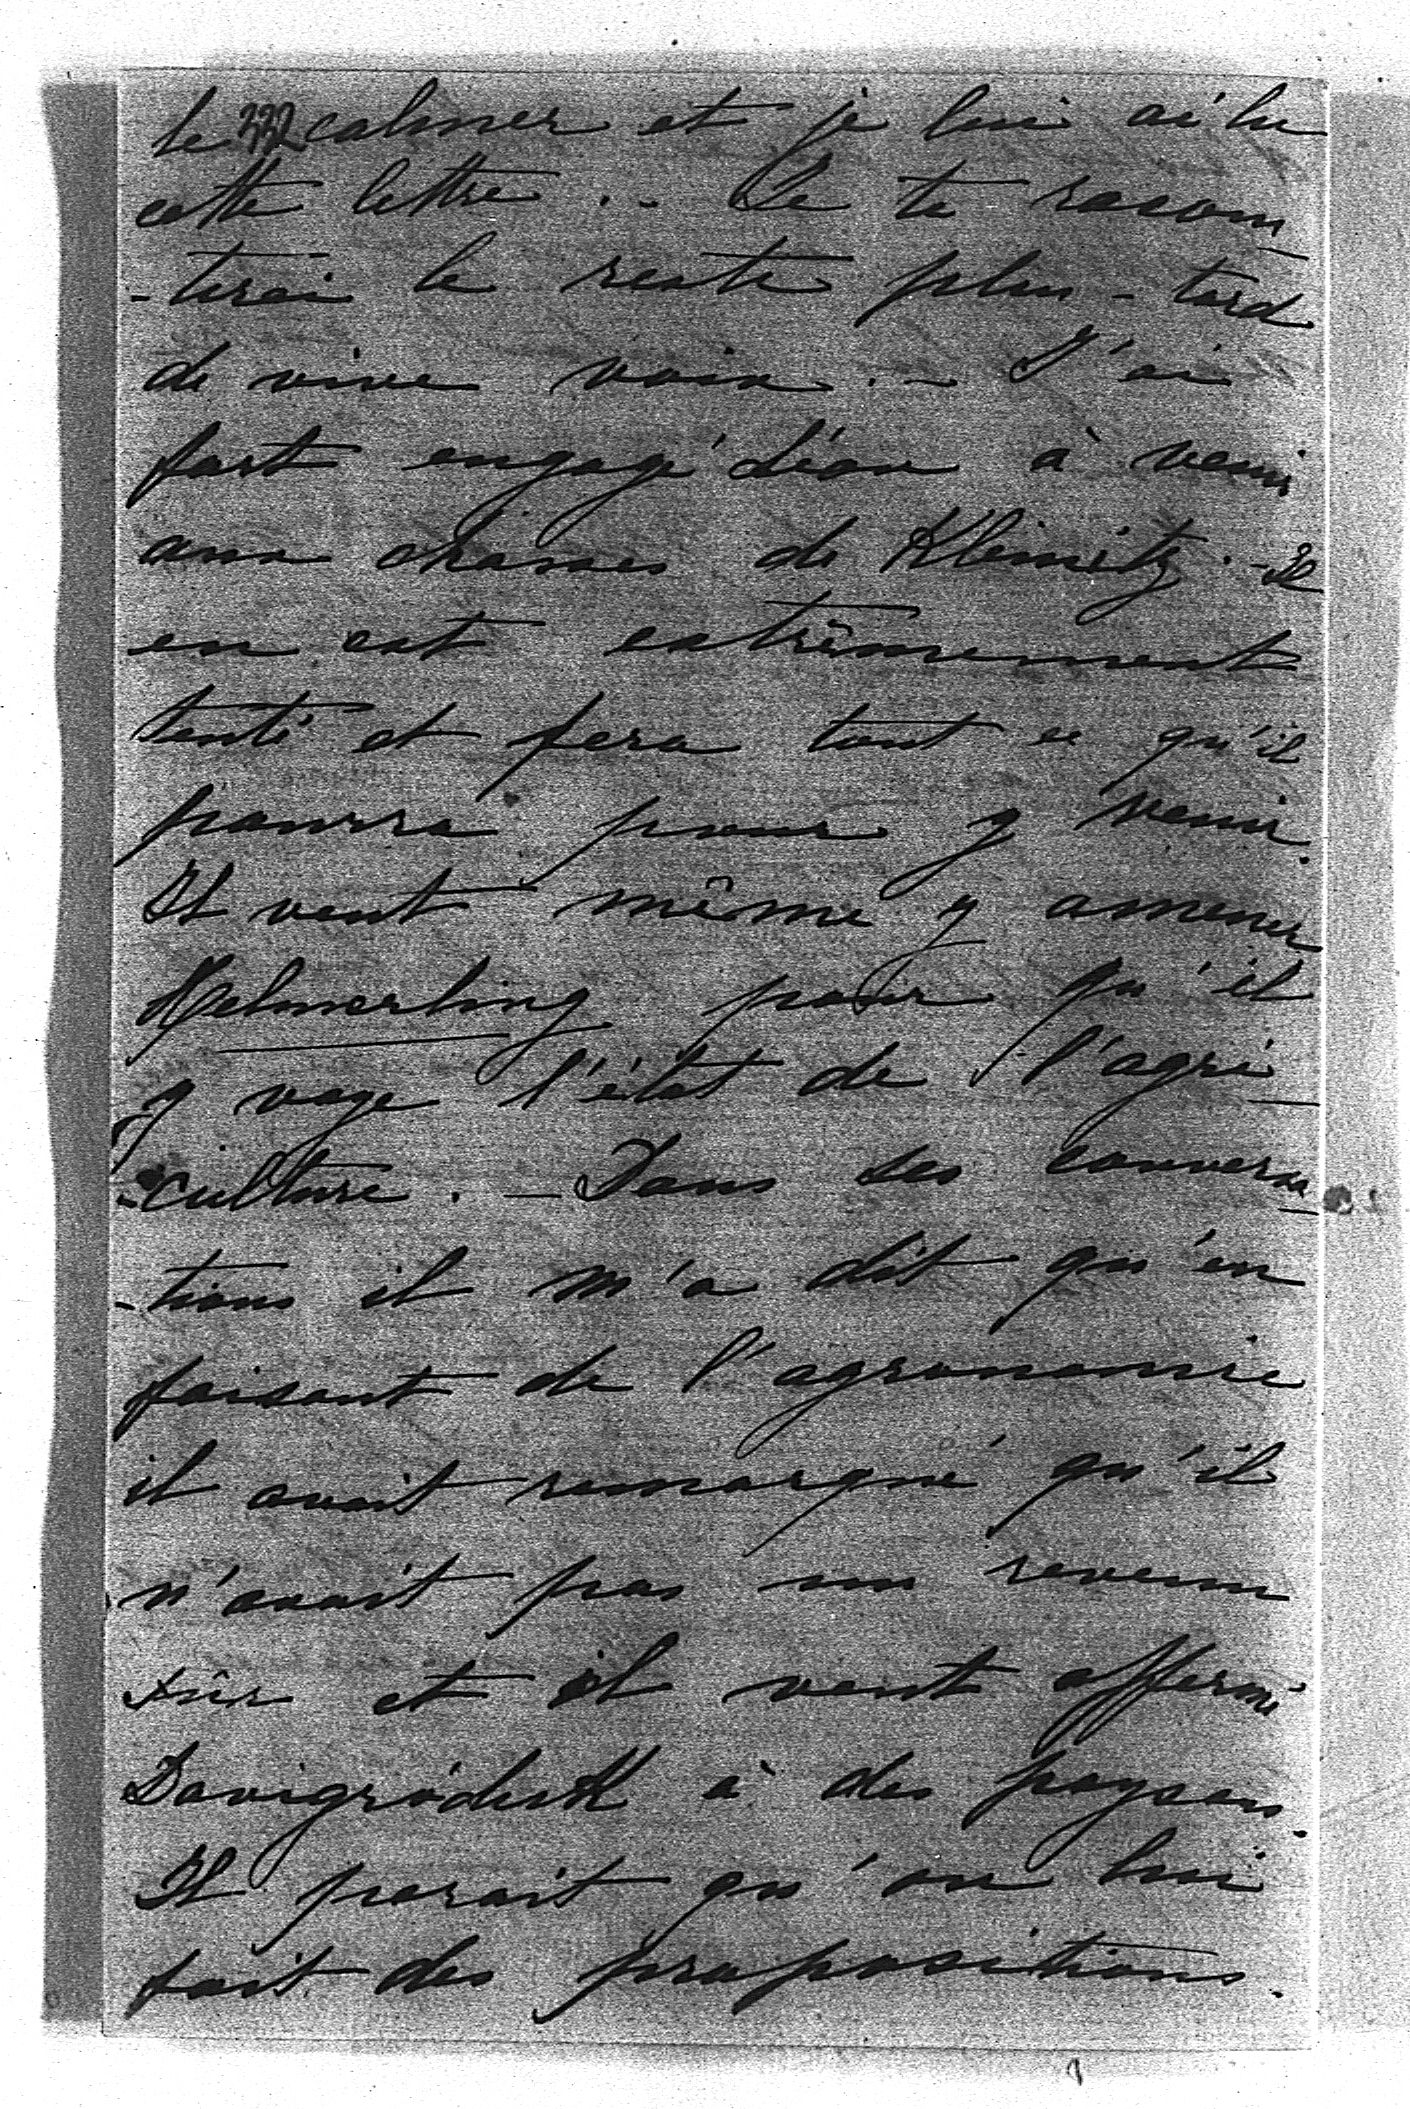 le 332 calmer et je lui ai lu
cette lettre .- Je te racon
-terai le reste plus-tard
de vive voix .- J'ai
fort engagé Léon à venir
aux chasses de Kleinitz .- Il
en est extrêmement
tenté et fera tout ce qu'il
pourra pour y venir.
Il veut même y amener
Helmerling pour qu'il
y voye l'état de l'agri
-culture . - Dans ses conversa
-tions il m'a dit qu'en
faisant de l'agronomie
il avait remarqué qu'il
n'avait pas un revenu
sûr et il veut affermé
Davigródek à des paysans.
Il parait qu'on lui
fait des propositions.